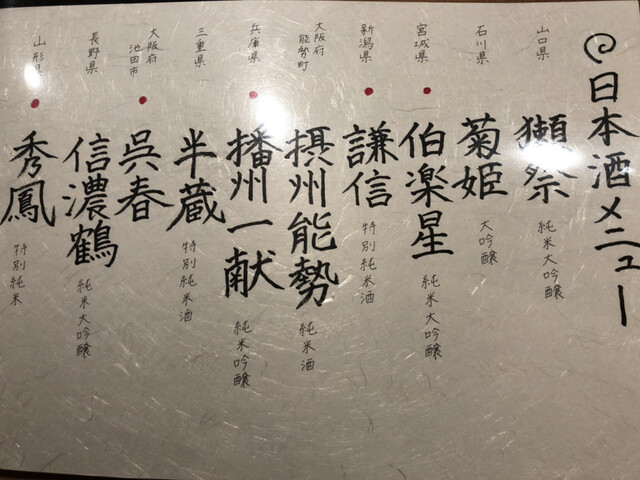 日本酒メニュー
山口県
獺祭 純米大吟醸
石川県
菊姫 大吟醸
宮城県
伯楽星 純米大吟醸
新潟県
謙信 特別純米酒
大阪府
能勢町
摂州能勢 純米酒
兵庫県
播州一献 純米吟醸
三重県
半蔵 特別純米酒
大阪府
池田市
呉春
長野県
信濃鶴 純米大吟醸
山形県
秀鳳 特別純米